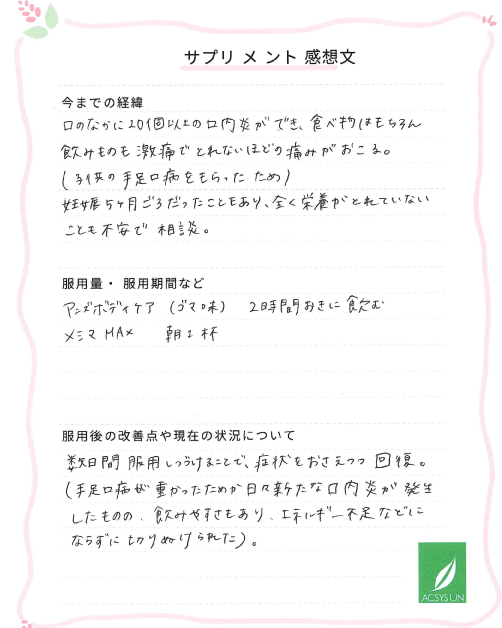 サプリメント 感想文
今までの経緯
口のなかに20個以上の口内炎ができ、食べ物はもちろん
飲みものも激痛でとれないほどの痛みがおこる。
(子供の手足口病をもらったため)
妊娠5ヶ月ごろだったこともあり、全く栄養がとれていない
ことも不安で相談。
服用量・ 服用期間など
アンズボディケア (ゴマ味) 2時間おきに飲む
メシマMAX 朝1杯
服用後の改善点や現在の状況について
数日間服用しつづけることで、症状をおさえつつ回復。
(手足口病が重かったためか日々新たな口内炎が発生
したものの、飲みやすさもあり、エネルギー不足などに
ならずに切りぬけられた)。
ACSYSUN